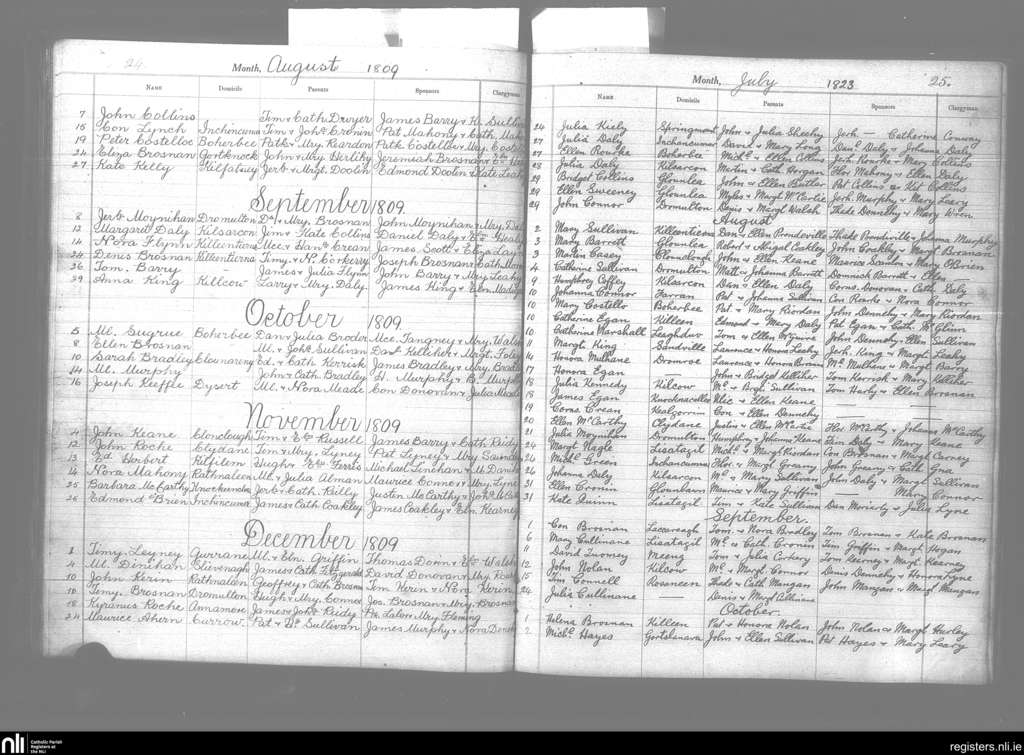 24.
Month, August 1809
Name Domicile Parents Sponsors Clergyman
7 John Collins Tim & Cath Dwyer James Barry &
15 Con Lynch Inchincuma Tim & Joh. Cronin Pat Mahony & Cath.
19 Peter Costelloe Boherbee Patk & Mry. Reardon Patk Costello & Mry.
24 Eliza Brosnan Gortknock John & Mry Herlihy Jeremiah Brosnan &
27 Kate Reilly Kilfabney Jerh & Mrgt. Doolin Edmond Doolin & Kate Leahy
September 1809.
8 Jerh Moynihan Dromulton Dl & Mry. Brosnan John Moynihan & Mry.
12 Margaret Daly Kilsarcon Jim & Kate Collins Daniel Daly &
14 Nora Flynn Killentierna Mce. & Han. Crean James Scott & Eliza
24 Denis Brosnan Killentierna Timy. & N. Corkery Joseph Brosnan & Cath
26 Tom. Barry James & Julia Flynn John Barry & Mry. Leahy
29 Anna King Killcow Larry & Mry. Daly James King & Eln.
October 1809.
5 Ml. Sugrue Boherbee Dan & Julia Broder Mce. Tangney & Mry. Walsh
8 Ellen Brosnan Ml. & Joh. Sullivan Danl Kelliher & Margt. Foley
10 Sarah Bradley Ed. & Cath Kerrisk James Bradley & Mry.
14 Ml. Murphy John & Cath. Bradley H. Murphy & B. Murphy
16 Joseph Keeffe Dysert Ml. & Nora Meade Con Donovan & Julia Meade
November 1809
4 John Keane Clonclough Tim & Russell James Barry & Cath Reidy
12 John Roche Clydane Tim & Mry. Lyney Pat Lyney & Mry.
13 Herbert Kilfilem Hugh & Ferris Michael Linehan &
4 Nora Mahony Rathmaleen Ml. & Julia Alman Maurice Connor & Mry. Lyne
25 Barbara McCarthy Jerh & Cath. Reilly Justin McCarthy & Joh.
26 Edmond OBrien Inchincuma James & Cath Coakley James Coakley & Eln Kearney
December 1809
1 Timy. Leyney Gurrane Ml. & Eln. Griffin Thomas Donn & Walsh
4 Ml. Dinihan James & Cath Fitzgerald David Donovan & Mry.
10 John Kerin Rathmaleen Geoffrey & Cath Brosnan Tim Kerin & Nora Kerin
10 Timy. Brosnan Dromulton Hugh & Mry. Connor Jos. Brosnan & Mry. Brosnan
18 Kyranus Roche Annamore James & Joh. Reidy Lalor & Mry. Fleming
24 Maurice Ahern Currow. Pat & Sullivan James Murphy & Nora
Month, July 1823 25.
Name Domicile Parents Sponsors Clergyman
24 Julia Kiely Springmount John & Julia Sheehy Jerh — Catherine Conway
27 Julia Daly Inchancumer Davis & Mary Long Danl. Daly & Johanna Daly
27 Ellen Rourke Boherbee Michl. & Ellen Collins Jerh. Rourke & Mary Collins
28 Julia Daly Kilsarcon Martin & Cath. Horgan Flor Mahony & Ellen Daly
29 Bridget Collins Glounlea John & Ellen Butler Pat Collins & Kit Collins
29 Ellen Sweeney Glounlea Myles & Margt McCartie Jerh. Murphy & Mary Leary
29 John Connor Dromulton Denis & Margt Walsh Thade Dennehy & Mary Wren
August
2 Mary Sullivan Killenticema Dan & Ellen Prendeville Thade Prendiville & Johanna Murphy
3 Mary Barrett Glounlea Robert & Abigal Coakley John Coakley & Margt Brosnan
3 Martin Casey Clounclogh John & Ellen Keane Maurice Scanlon & Mary O'Brien
4 Catherine Sullivan Dromulton Matt & Johanna Barrett Dominick Barrett &
9 Humphrey Coffey Kilsarcon Dan & Ellen Daly Corns. Donovan & Cath. Daly
10 Johanna Connor Farran Pat & Johanna Sullivan Con Rourke & Nora Connor
10 Mary Costello Boherbee Pat & Mary Riordan John Dennehy & Mary Riordan
10 Catherine Egan Killeen Edmond & Mary Daly Pat Egan & Cath. McGlinn
10 Catherine Marshall Leamhdur Tom & Ellen Wynne John Dennehy & Ellen Sullivan
11 Margt. King Sandville Laurence & Honora Leahy Jerh. King & Margt Leahy
14 Honora Mullane Dromroe Laurence & Honora Brosnan Ml. Mulhane & Margt Barry
17 Honora Egan — John & Bridget Kelliher Tom Kerrisk & Mary Kelliher
18 Julia Kennedy Kilcow Ml. & Argh Sullivan Tom Harty & Ellen Brosnan
18 James Egan Knocknacullea Ulic & Ellen Keane — —
19 Corns Crean Kealgorrim Con & Ellen Dennehy — —
20 Ellen McCarthy Clydane Justin & Ellen McCartie Flor McCarthy & Johanna McCarthy
21 Julia Moynihan Dromulton Humphry & Johanna Keane Tim Daly & Mary Keane
24 Margt Nagle Lisatagil Michl. & Margt Riordan Con Brosnan & Margt Carney
24 Michl. Green Inchancummer Flor & Margt Greany John Greany & Cath.
26 Johanna Daly Kilsarcon Ml. & Mary Sullivan John Daly & Margt Sullivan
31 Ellen Cronin Glounbawn Maurice & Mary Griffin — Mary Connor
31 Kate Quinn Lisatigil Tim & Kate Sullivan Dan Moriarty & Julia Lyne
September.
1 Con Brosnan Laccaveagh Tom. & Nora Bradley Tom Brosnan & Kate Brosnan
6 Mary Cullinane Lisatagil Ml. & Cath Cronin Tim Griffin & Margt Hogan
11 David Twoney Meeng Tom & Julia Corkery Tom Kearney & Margt Kearney
12 John Nolan Kilcow Ml. & Margt Connor Denis Dennehy & Honora Lyne
15 Tim Connell Rosneen Thade & Cath Mangan John Mangan & Margt Mangan
24 Julia Cullinane — Denis & Margt Cullinane
October.
1 Helena Brosnan Killeen Pat & Honora Nolan John Nolan & Margt Hurley
2 Michl. Hayes Gortshanara John & Ellen Sullivan Pat Hayes & Mary Leary
nli Catholic Parish Registers at the NLI
registers.nli.ie